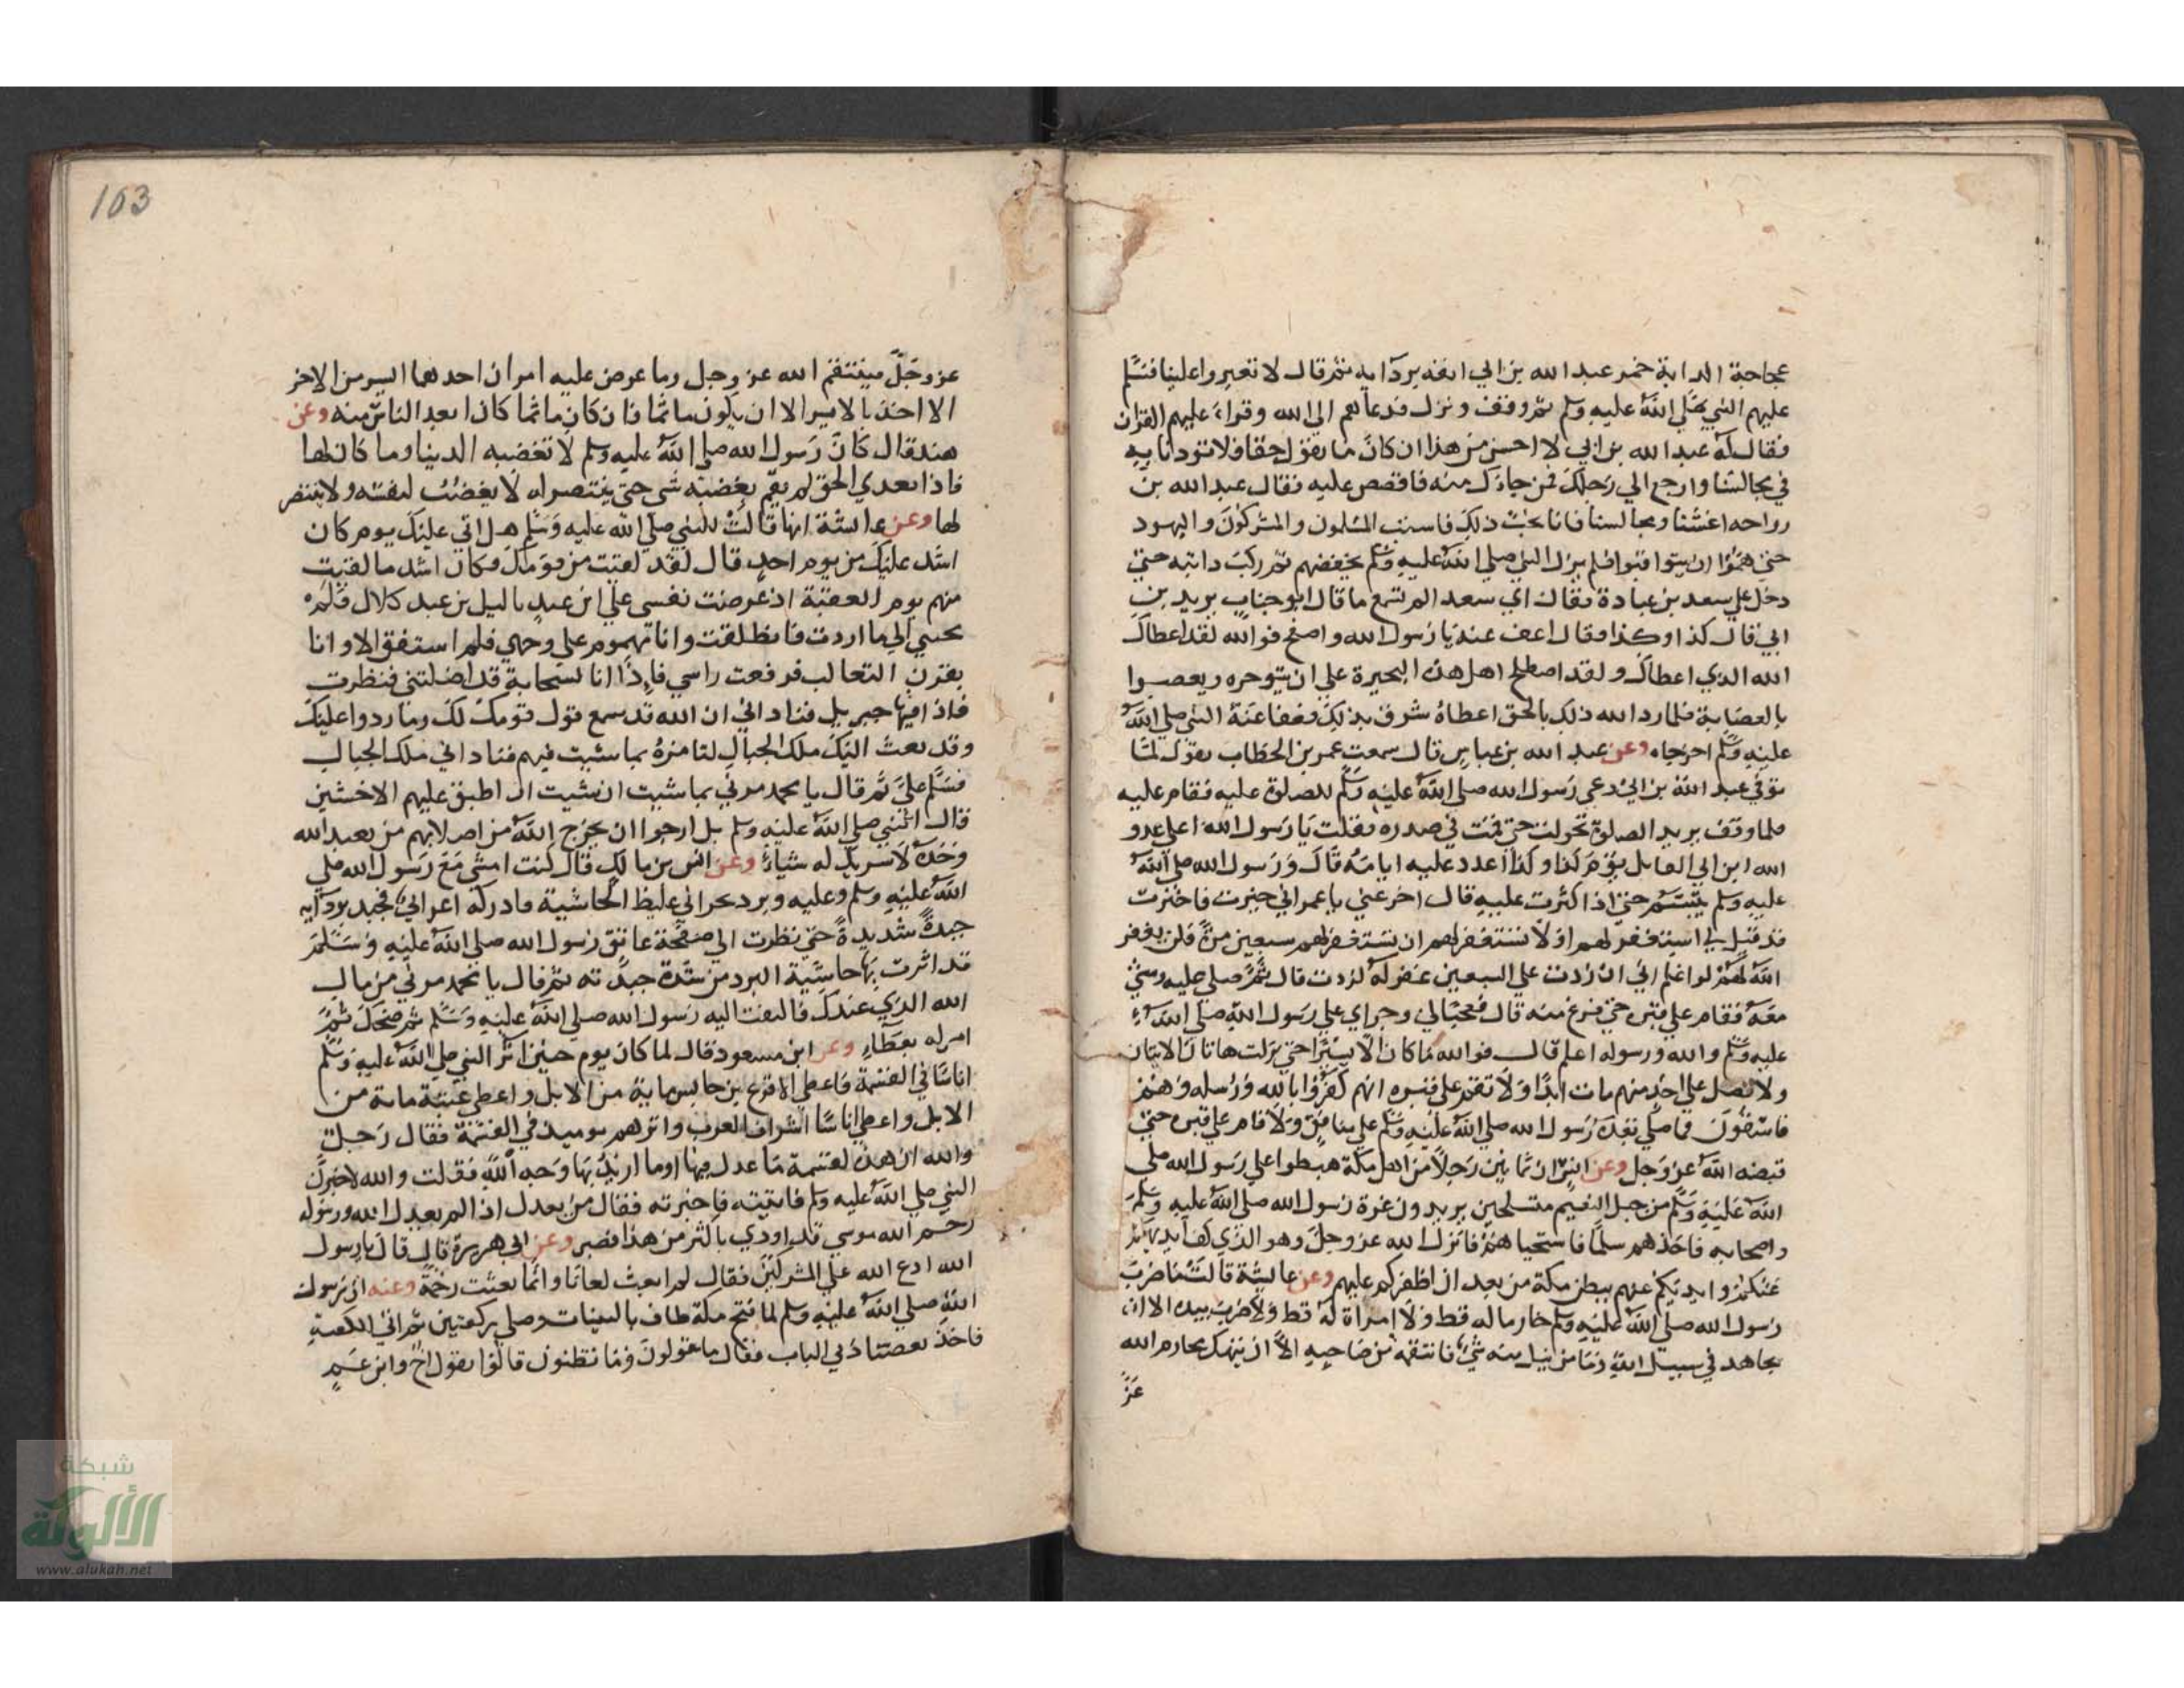 عجاجة الدابة خمر عبد الله بن ابي انفه بردآيه ثم قال لا تغبروا علينا فسلم
عليهم النبي صلى الله عليه وسلم ثم وقف ونزل فدعاهم الى الله وقراء عليهم القران
فقال له عبد الله بن ابي لا احسن من هذا ان كان ما تقول حقا فلا تؤذنا به
في مجالسنا وارجع الي رحلك فمن جاءك منه فاقصص عليه فقال عبد الله بن
رواحه اغشنا في مجالسنا فانا نحب ذلك فاستب المسلمون والمشركون واليهود
حتى هموا ان يتواثبوا فلم يزل النبي صلي الله عليه وسلم يخفضهم ثم ركب دابته حتى
دخل علي سعد بن عبادة فقال اي سعد الم تسمع ما قال ابو حباب يريد بن
ابي قال كذا وكذا فقال اعف عنه يا رسول الله واصفح فوالله لقد اعطاك
الله الذي اعطاك ولقد اصطلح اهل هذه البحيرة علي ان يتوجوه ويعصبوا
بالعصابة فلما رد الله ذلك بالحق اعطاه شرق بذلك فعفا عنه النبي صلي الله
عليه وسلم اخرجاه وعن عبد الله بن عباس قال سمعت عمر بن الخطاب يقول لما
توفي عبد الله بن ابي دعي رسول الله صلي الله عليه وسلم للصلوة عليه فقام عليه
فلما وقف يريد الصلوة تحولت حتى قمت في صدره فقلت يا رسول الله اعلي عدو
الله ابن ابي القائل يوم كذا وكذا اعدد عليه ايامه قال ورسول الله صلي الله
عليه وسلم يتبسم حتى اذا اكثرت عليه قال اخر عني يا عمر اني خيرت فاخترت
قد قيل لي استغفر لهم او لا تستغفر لهم ان تستغفر لهم سبعين مرة فلن يغفر
الله لهم لو اعلم اني ان زدت علي السبعين غفر له لزدت قال ثم صلي عليه ومشي
معه فقام علي قبره حتى فرغ منه قال فعجبا لي وجراي علي رسول الله صلي الله
عليه وسلم والله ورسوله اعلم قال فوالله ما كان الا يسيرا حتى نزلت هاتان الايتان
ولا تصل علي احد منهم مات ابدا ولا تقم على قبره انهم كفروا بالله ورسوله وهم
فاسقون فما صلي بعده رسول الله صلي الله عليه وسلم علي منافق ولا قام علي قبره حتى
قبضه الله عز وجل وعن انس ان ثمانين رجلا من اهل مكة هبطوا علي رسول الله صلي
الله عليه وسلم من جبل التنعيم متسلحين يريدون غرة رسول الله صلى الله عليه وسلم
واصحابه فاخذهم سلما فاستحياهم فانزل الله عز وجل وهو الذي كف ايديهم
عنكم وايديكم عنهم ببطن مكة من بعد ان اظفركم عليهم وعن عايشة قالت ما ضرب
رسول الله صلي الله عليه وسلم خادما له قط ولا امراة له قط ولا ضرب بيده الا ان
يجاهد في سبيل الله وما نيل منه شيء فانتقمه من صاحبه الا ان تنتهك محارم الله
عز
163
عز وجل فينتقم الله عز وجل وما عرض عليه امران احدهما ايسر من الاخر
الا اخذ بالايسر الا ان يكون ماثما فان كان ماثما كان ابعد الناس منه وعن
هند قال كان رسول الله صلى الله عليه وسلم لا تغضبه الدنيا وما كان لها
فاذا تعدي الحق لم يقم لغضبه شي حتى ينتصر له لا يغضب لنفسه ولا ينتصر
لها وعن عايشة انها قالت للنبي صلي الله عليه وسلم هل اتي عليك يوم كان
اشد عليك من يوم احد قال لقد لقيت من قومك وكان اشد ما لقيت
منهم يوم العقبة اذ عرضت نفسي علي ابن عبد ياليل بن عبد كلال فلم
يجبني الي ما اردت فانطلقت وانا مهموم على وجهي فلم استفق الا وانا
بقرن الثعالب فرفعت راسي فاذا انا بسحابة قد اظلتني فنظرت
فاذا فيها جبريل فناداني ان الله قد سمع قول قومك لك وما ردوا عليك
وقد بعث اليك ملك الجبال لتامره بما شيت فيهم فناداني ملك الجبال
فسلم علي ثم قال يا محمد مرني بما شيت ان شيت ان اطبق عليهم الاخشبين
قال النبي صلي الله عليه وسلم بل ارجوا ان يخرج الله من اصلابهم من يعبد الله
وحده لا شريك له شياء وعن انس بن مالك قال كنت امشي مع رسول الله صلي
الله عليه وسلم وعليه وبرد نجراني غليظ الحاشية فادركه اعرابي فجبد بردآيه
جبدة شديدة حتى نظرت الي صفحة عاتق رسول الله صلي الله عليه وسلم
قد اثرت بها حاشية البرد من شدة جبدته ثم قال يا محمد مر لي من مال
الله الذي عندك فالتفت اليه رسول الله صلي الله عليه وسلم ثم ضحك ثم
امر له بعطآء وعن ابن مسعود قال لما كان يوم حنين اثر النبي صلي الله عليه وسلم
اناسا في الغنيمة فاعطي الاقرع بن حابس ماية من الابل واعطي عيينة ماية من
الابل واعطي اناسا اشراف العرب واثرهم يوميذ في الغنيمة فقال رجل
والله ان هذه لغنيمة ما عدل فيها او ما اريد بها وجه الله فقلت والله لاخبرن
النبي صلي الله عليه وسلم فاتيته فاخبرته فقال من يعدل اذا لم يعدل الله ورسوله
رحم الله موسي قد اوذي باكثر من هذا فصبر وعن ابي هريرة قال قال يا رسول
الله ادع الله علي المشركين فقال لم ابعث لعانا وانما بعثت رحمة وعنه ان رسول
الله صلي الله عليه وسلم لما فتح مكة طاف بالبيت وصلي ركعتين ثم اتي الكعبة
فاخذ بعضادتي الباب فقال ما تقولون وما تظنون قالوا نقول اخ وابن عم
شبكة
الألوكة
www.alukah.net